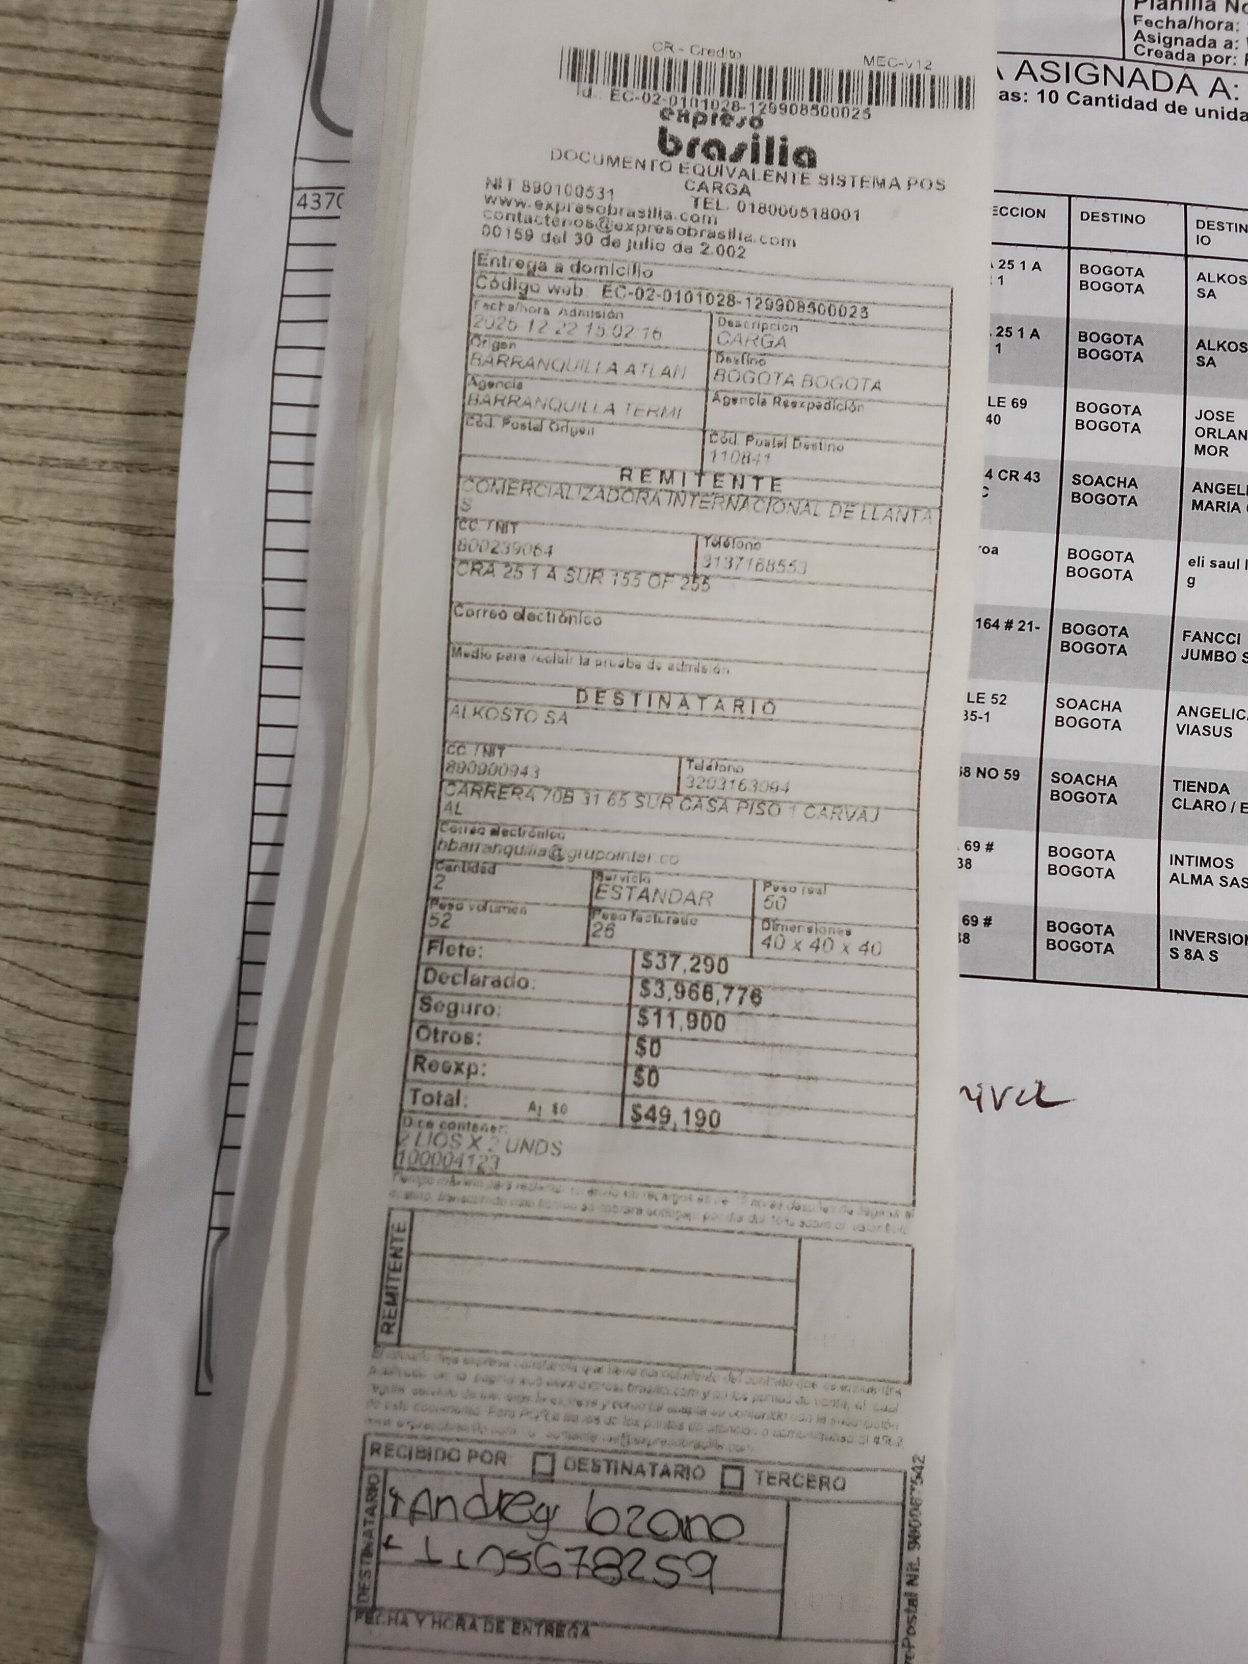 CR - Credito
MEC-V12
Id.: EC-02-0101028-129908500025
expreso
brasilia
DOCUMENTO EQUIVALENTE SISTEMA POS
CARGA
NIT 890100531
TEL. 018000518001
www.expresobrasilia.com
contactenos@expresobrasilia.com
00159 del 30 de julio de 2.002
Entrega a domicilio
Código web: EC-02-0101028-129908500025
Fecha/hora Admisión
2025-12-22 15:02:16
Descripción
CARGA
Origen
BARRANQUILLA ATLAN
Destino
BOGOTA BOGOTA
Agencia
BARRANQUILLA TERMI
Agencia Reexpedición
Cód. Postal Origen
Cód. Postal Destino
110841
REMITENTE
COMERCIALIZADORA INTERNACIONAL DE LLANTA
S
CC. / NIT
800239064
Teléfono
3137168553
CRA 25 1 A SUR 155 OF 255
Correo electrónico
Medio para recibir la prueba de admisión
DESTINATARIO
ALKOSTO SA
CC. / NIT
890900943
Teléfono
3203163094
CARRERA 70B 31 65 SUR CASA PISO 1 CARVAJ
AL
Correo electrónico
bbarranquilla@grupointer.co
Cantidad
2
Servicio
ESTANDAR
Peso real
50
Peso volumen
52
Peso facturado
26
Dimensiones
40 x 40 x 40
Flete: $37,290
Declarado: $3,966,776
Seguro: $11,900
Otros: $0
Reexp: $0
Total: $49,190
Dice contener:
2 LIOS X 2 UNDS
100004123
REMITENTE
RECIBIDO POR: DESTINATARIO TERCERO
DESTINATARIO
Andrey
FECHA Y HORA DE ENTREGA
4370
Planilla No
Fecha/hora:
Asignada a:
Creada por:
ASIGNADA A:
as: 10 Cantidad de unida
ECCION DESTINO DESTIN
IO
25 1 A
1
BOGOTA
BOGOTA
ALKOS
SA
25 1 A
1
BOGOTA
BOGOTA
ALKOS
SA
LE 69
40
BOGOTA
BOGOTA
JOSE
ORLAN
MOR
4 CR 43
C
SOACHA
BOGOTA
ANGELI
MARIA
roa
BOGOTA
BOGOTA
eli saul
g
164 # 21-
BOGOTA
BOGOTA
FANCCI
JUMBO S
LE 52
35-1
SOACHA
BOGOTA
ANGELIC
VIASUS
8 NO 59
SOACHA
BOGOTA
TIENDA
CLARO / E
69 #
38
BOGOTA
BOGOTA
INTIMOS
ALMA SAS
69 #
38
BOGOTA
BOGOTA
INVERSION
S 8A S